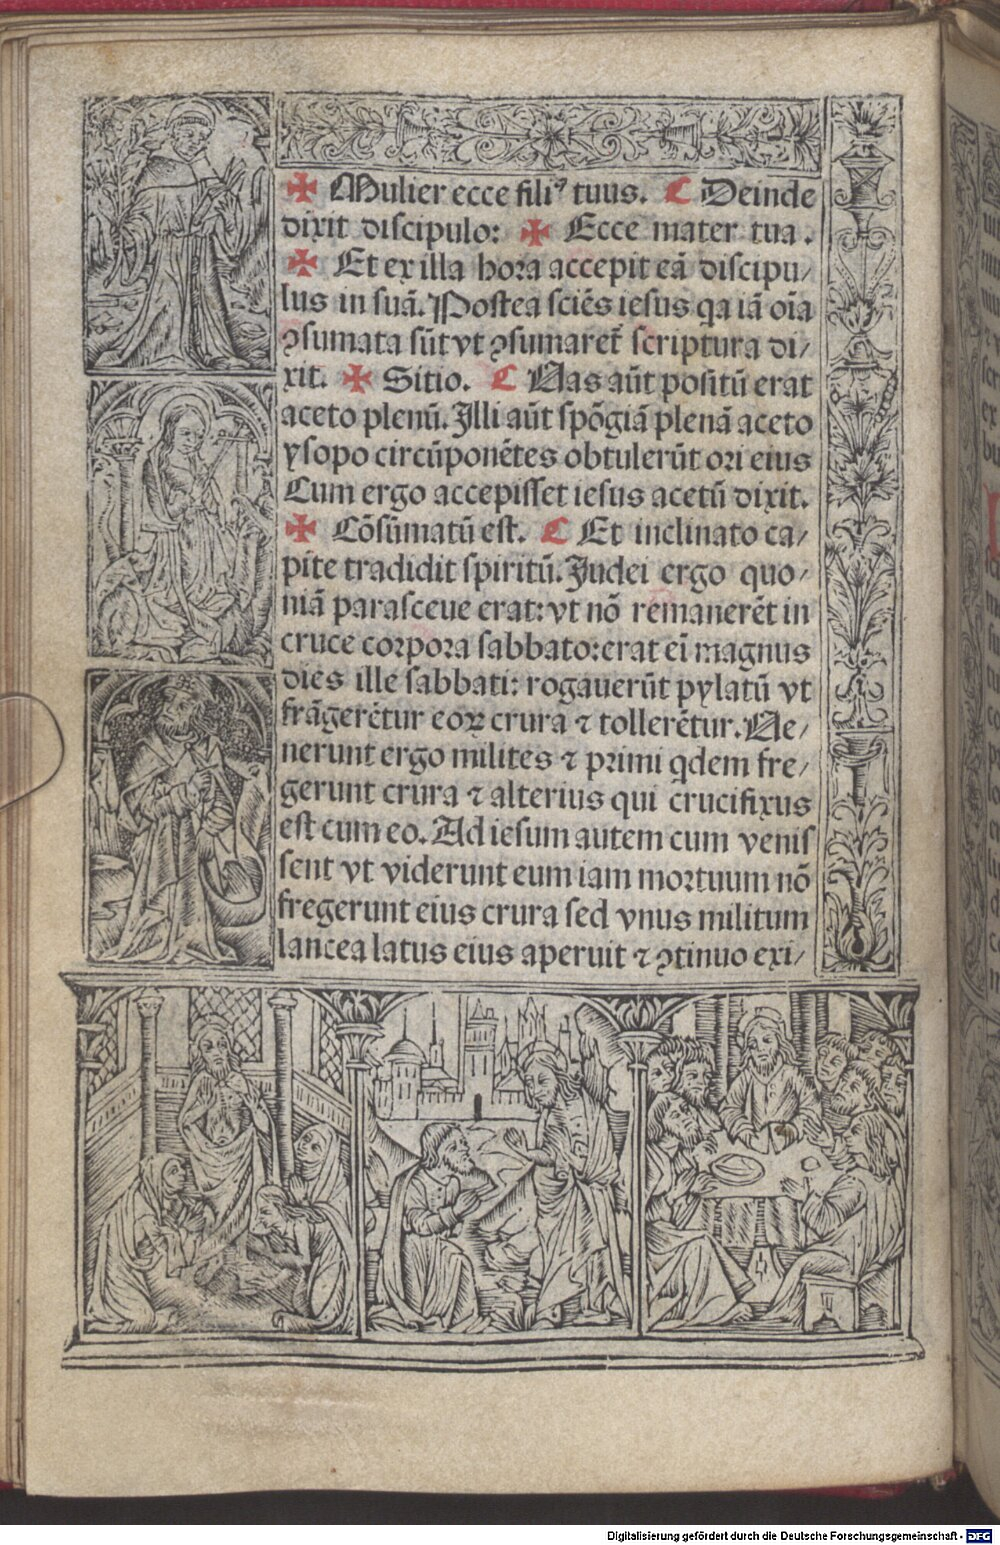 ✠ Mulier ecce filiꝰ tuus. ⸿ Deinde
dixit discipulo: ✠ Ecce mater tua.
✠ Et ex illa hora accepit eã discipu/
lus in suã. Postea sciẽs iesus qa iã oĩa
ꝯsumata sũt vt ꝯsumaret̃ scriptura di/
xit. ✠ Sitio. ⸿ Uas aũt positũ erat
aceto plenũ. Illi aũt spõgiã plenã aceto
ysopo circũponẽtes obtulerũt ori eius
Cum ergo accepisset iesus acetũ dixit.
✠ Cõsũmatũ est. ⸿ Et inclinato ca/
pite tradidit spiritũ. Iudei ergo quo/
niã parasceue erat: vt nõ remanerẽt in
cruce corpora sabbato: erat ei̇̃ magnus
dies ille sabbati: rogauerũt pylatũ vt
frãgerẽtur eoꝝ crura ⁊ tollerẽtur. Ue/
nerunt ergo milites ⁊ primi q̇dem fre/
gerunt crura ⁊ alterius qui crucifixus
est cum eo. Ad iesum autem cum venis
sent vt viderunt eum iam mortuum nõ
fregerunt eius crura sed vnus militum
lancea latus eius aperuit ⁊ ꝯtinuo exi/
Digitalisierung gefördert durch die Deutsche Forschungsgemeinschaft - DFG